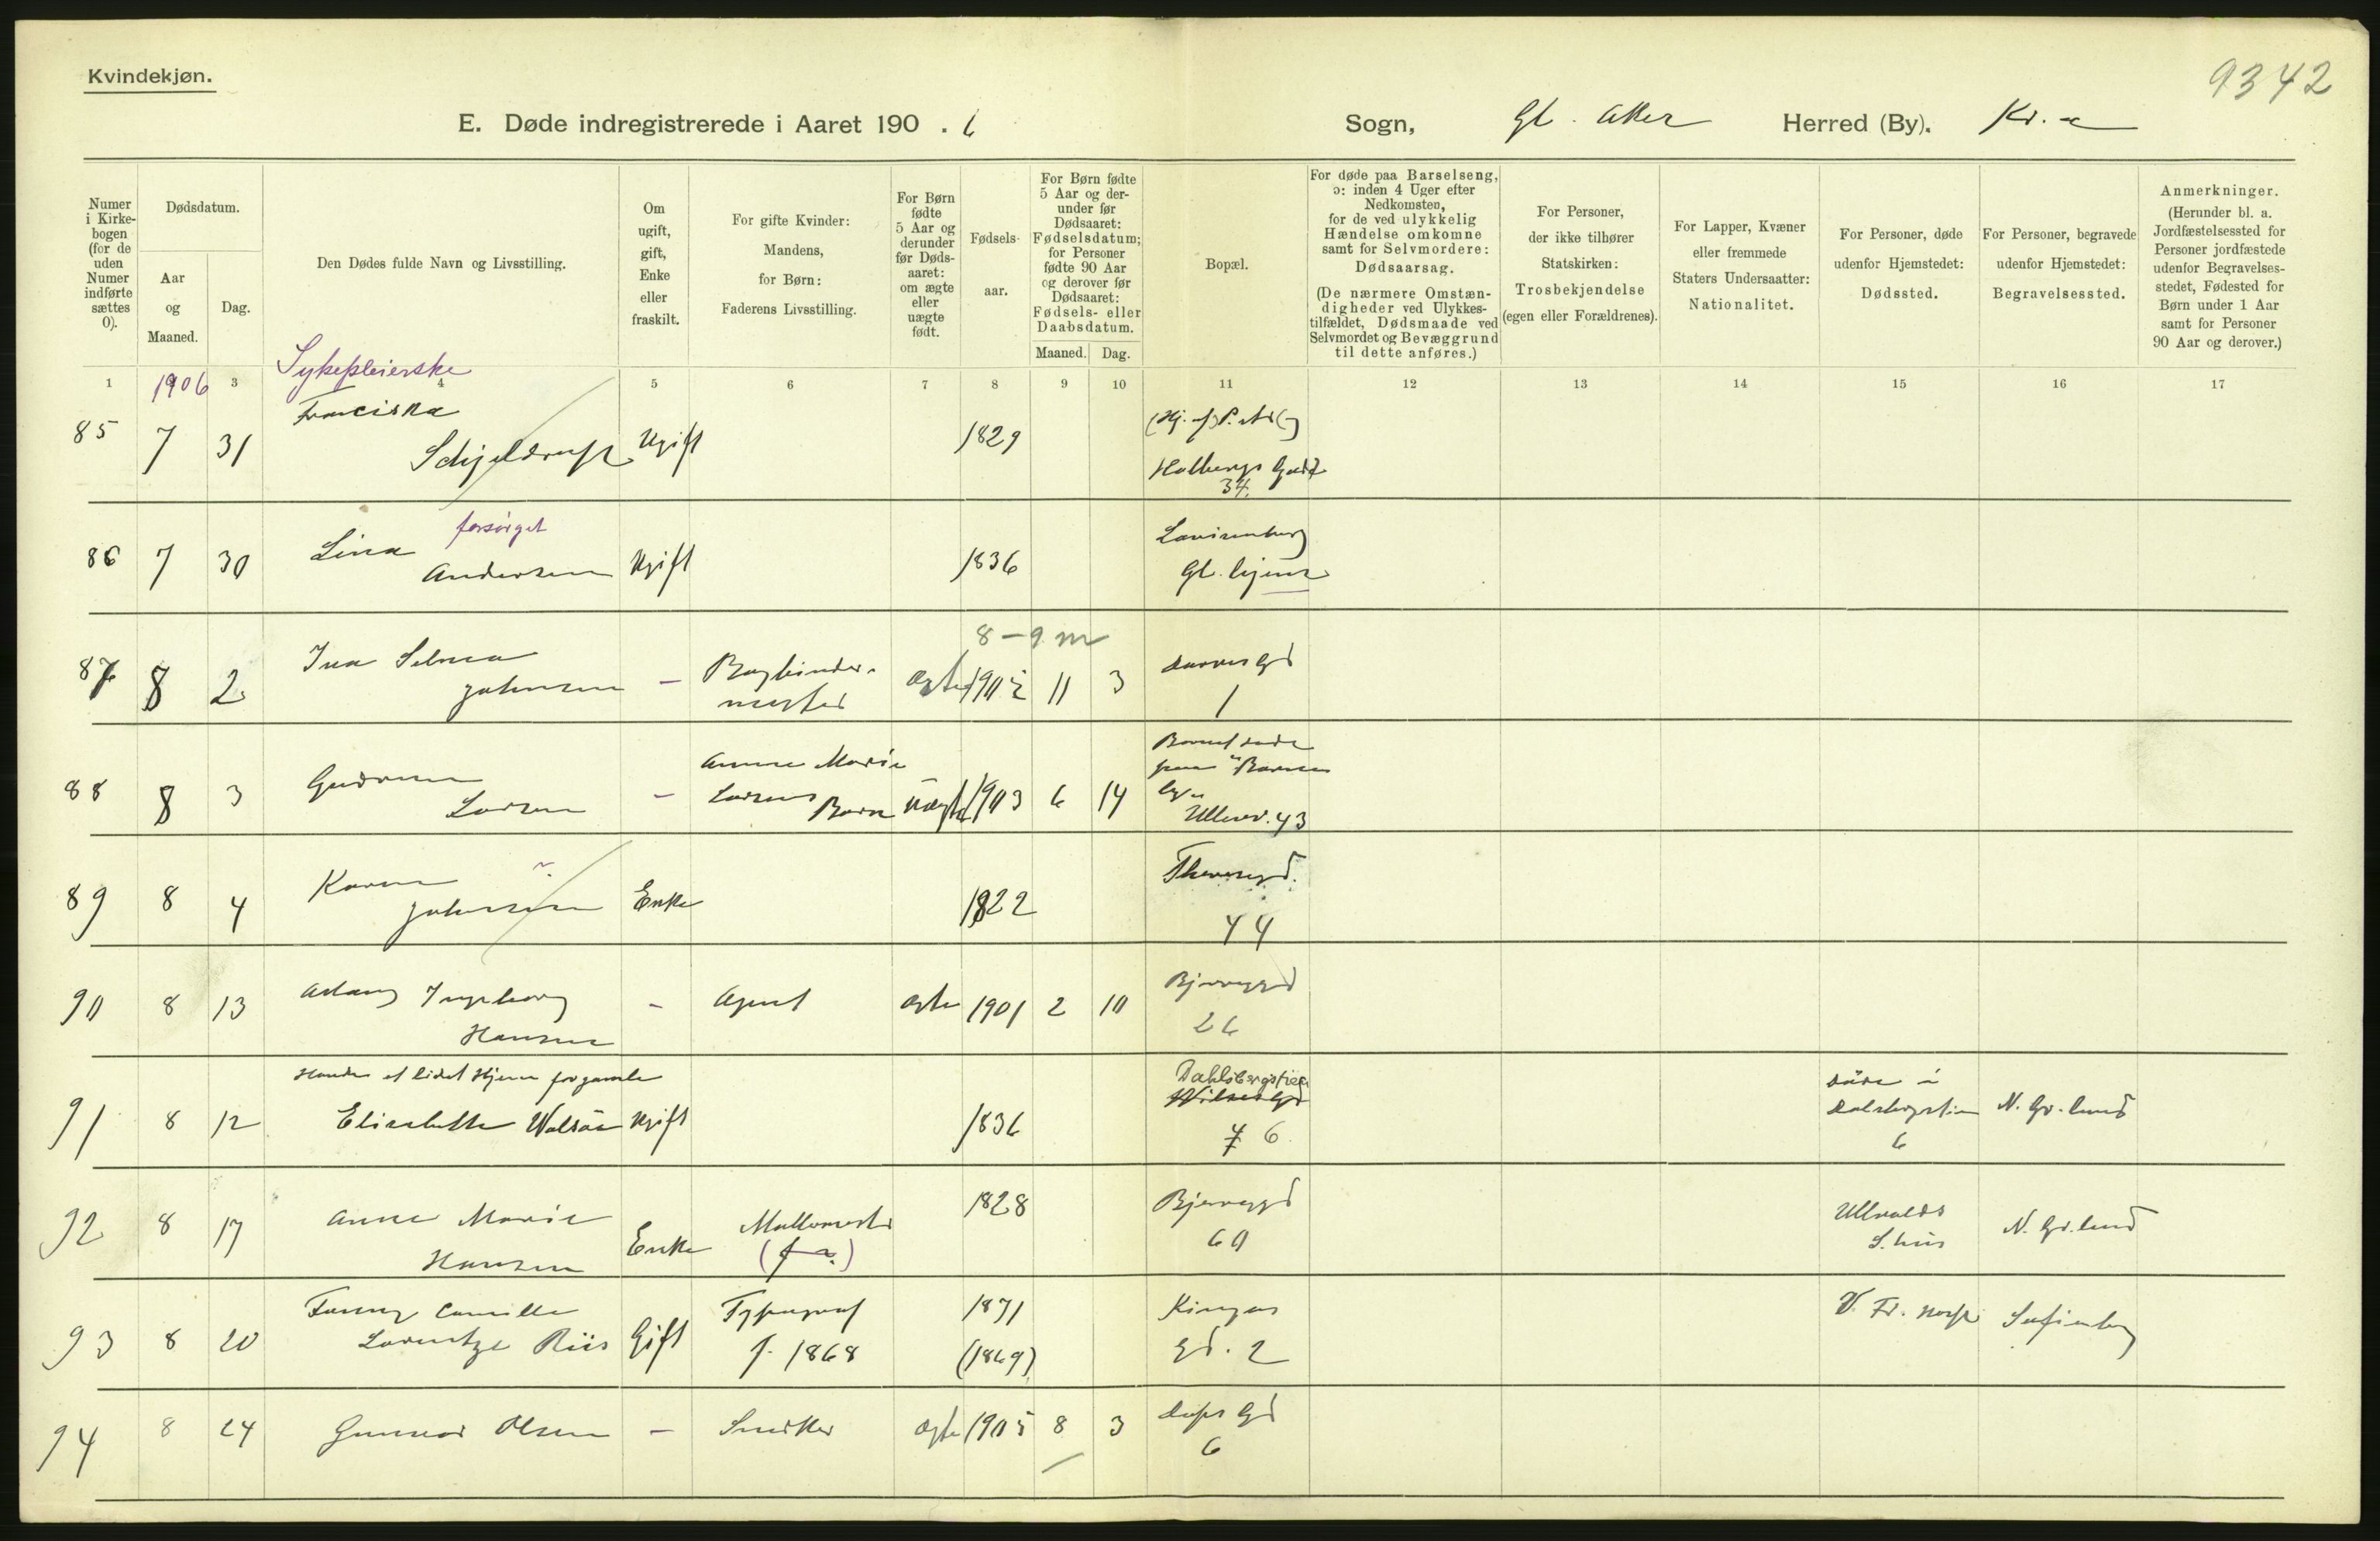 Kvindekjøn.
9342
E. Døde indregistrerede i Aaret 190 . 6
Sogn, Gl. Aker Herred (By). Kr.a
Numer i Kirkebogen (for de uden Numer indførte sættes 0).
Dødsdatum.
Aar og Maaned.
Dag.
Den Dødes fulde Navn og Livsstilling.
Om ugift, gift, Enke eller fraskilt.
For gifte Kvinder: Mandens, for Børn: Faderens Livsstilling.
For Børn fødte 5 Aar og derunder før Dødsaaret: om ægte eller uægte født.
Fødselsaar.
For Børn fødte 5 Aar og derunder før Dødsaaret: Fødselsdatum; for Personer fødte 90 Aar og derover før Dødsaaret: Fødsels- eller Daabsdatum.
Maaned. Dag.
Bopæl.
For døde paa Barselseng, ɔ: inden 4 Uger efter Nedkomsten, for de ved ulykkelig Hændelse omkomne samt for Selvmordere: Dødsaarsag. (De nærmere Omstændigheder ved Ulykkestilfældet, Dødsmaade ved Selvmordet og Bevæggrund til dette anføres.)
For Personer, der ikke tilhører Statskirken: Trosbekjendelse (egen eller Forældrenes).
For Lapper, Kvæner eller fremmede Staters Undersaatter: Nationalitet.
For Personer, døde udenfor Hjemstedet: Dødssted.
For Personer, begravede udenfor Hjemstedet: Begravelsessted.
Anmerkninger. (Herunder bl. a. Jordfæstelsessted for Personer jordfæstede udenfor Begravelsesstedet, Fødested for Børn under 1 Aar samt for Personer 90 Aar og derover.)
1 3 4 5 6 7 8 9 10 11 12 13 14 15 16 17
1906
Sykepleierske
85 7 31 Franciska Schjelderup Ugift 1829 Holbergs Gade 34.
forsørget
86 7 30 Lina Andersen Ugift 1836 Lovisenberg Gl. hjem
8-9 m
87 8 2 Selma Johnsen - Bogbindermester ægte 1905 11 3 1
88 8 3 Gudrun Larsen - Anna Marie Larsens Barn uægte 1903 6 14 Ullev. 43
89 8 4 Karen Johnsen Enke 1822 Theresegd. 44
90 8 13 Aslaug Ingeborg Hansen - Agent ægte 1901 2 10 Bjerregd 26
Havde et lidet Hjem for gamle
91 8 12 Elisabeth Ugift 1836 Dahlsbergstien 7 6 døde i Dalsbergstien 6 N. Gr. lund
92 8 17 Anne Marie Hansen Enke 1828 Bjerregd 60 Ullevolds S.hus N. Gr. lund
93 8 20 Fanny Camilla Lorentze Riis Gift Typograf f. 1868 1871 (1869) Kingos Gd. 2 V. Fr. hosp. Sofienberg
94 8 24 Gunvor Olsen - Snedker ægte 1905 8 3 Daps Gd 6